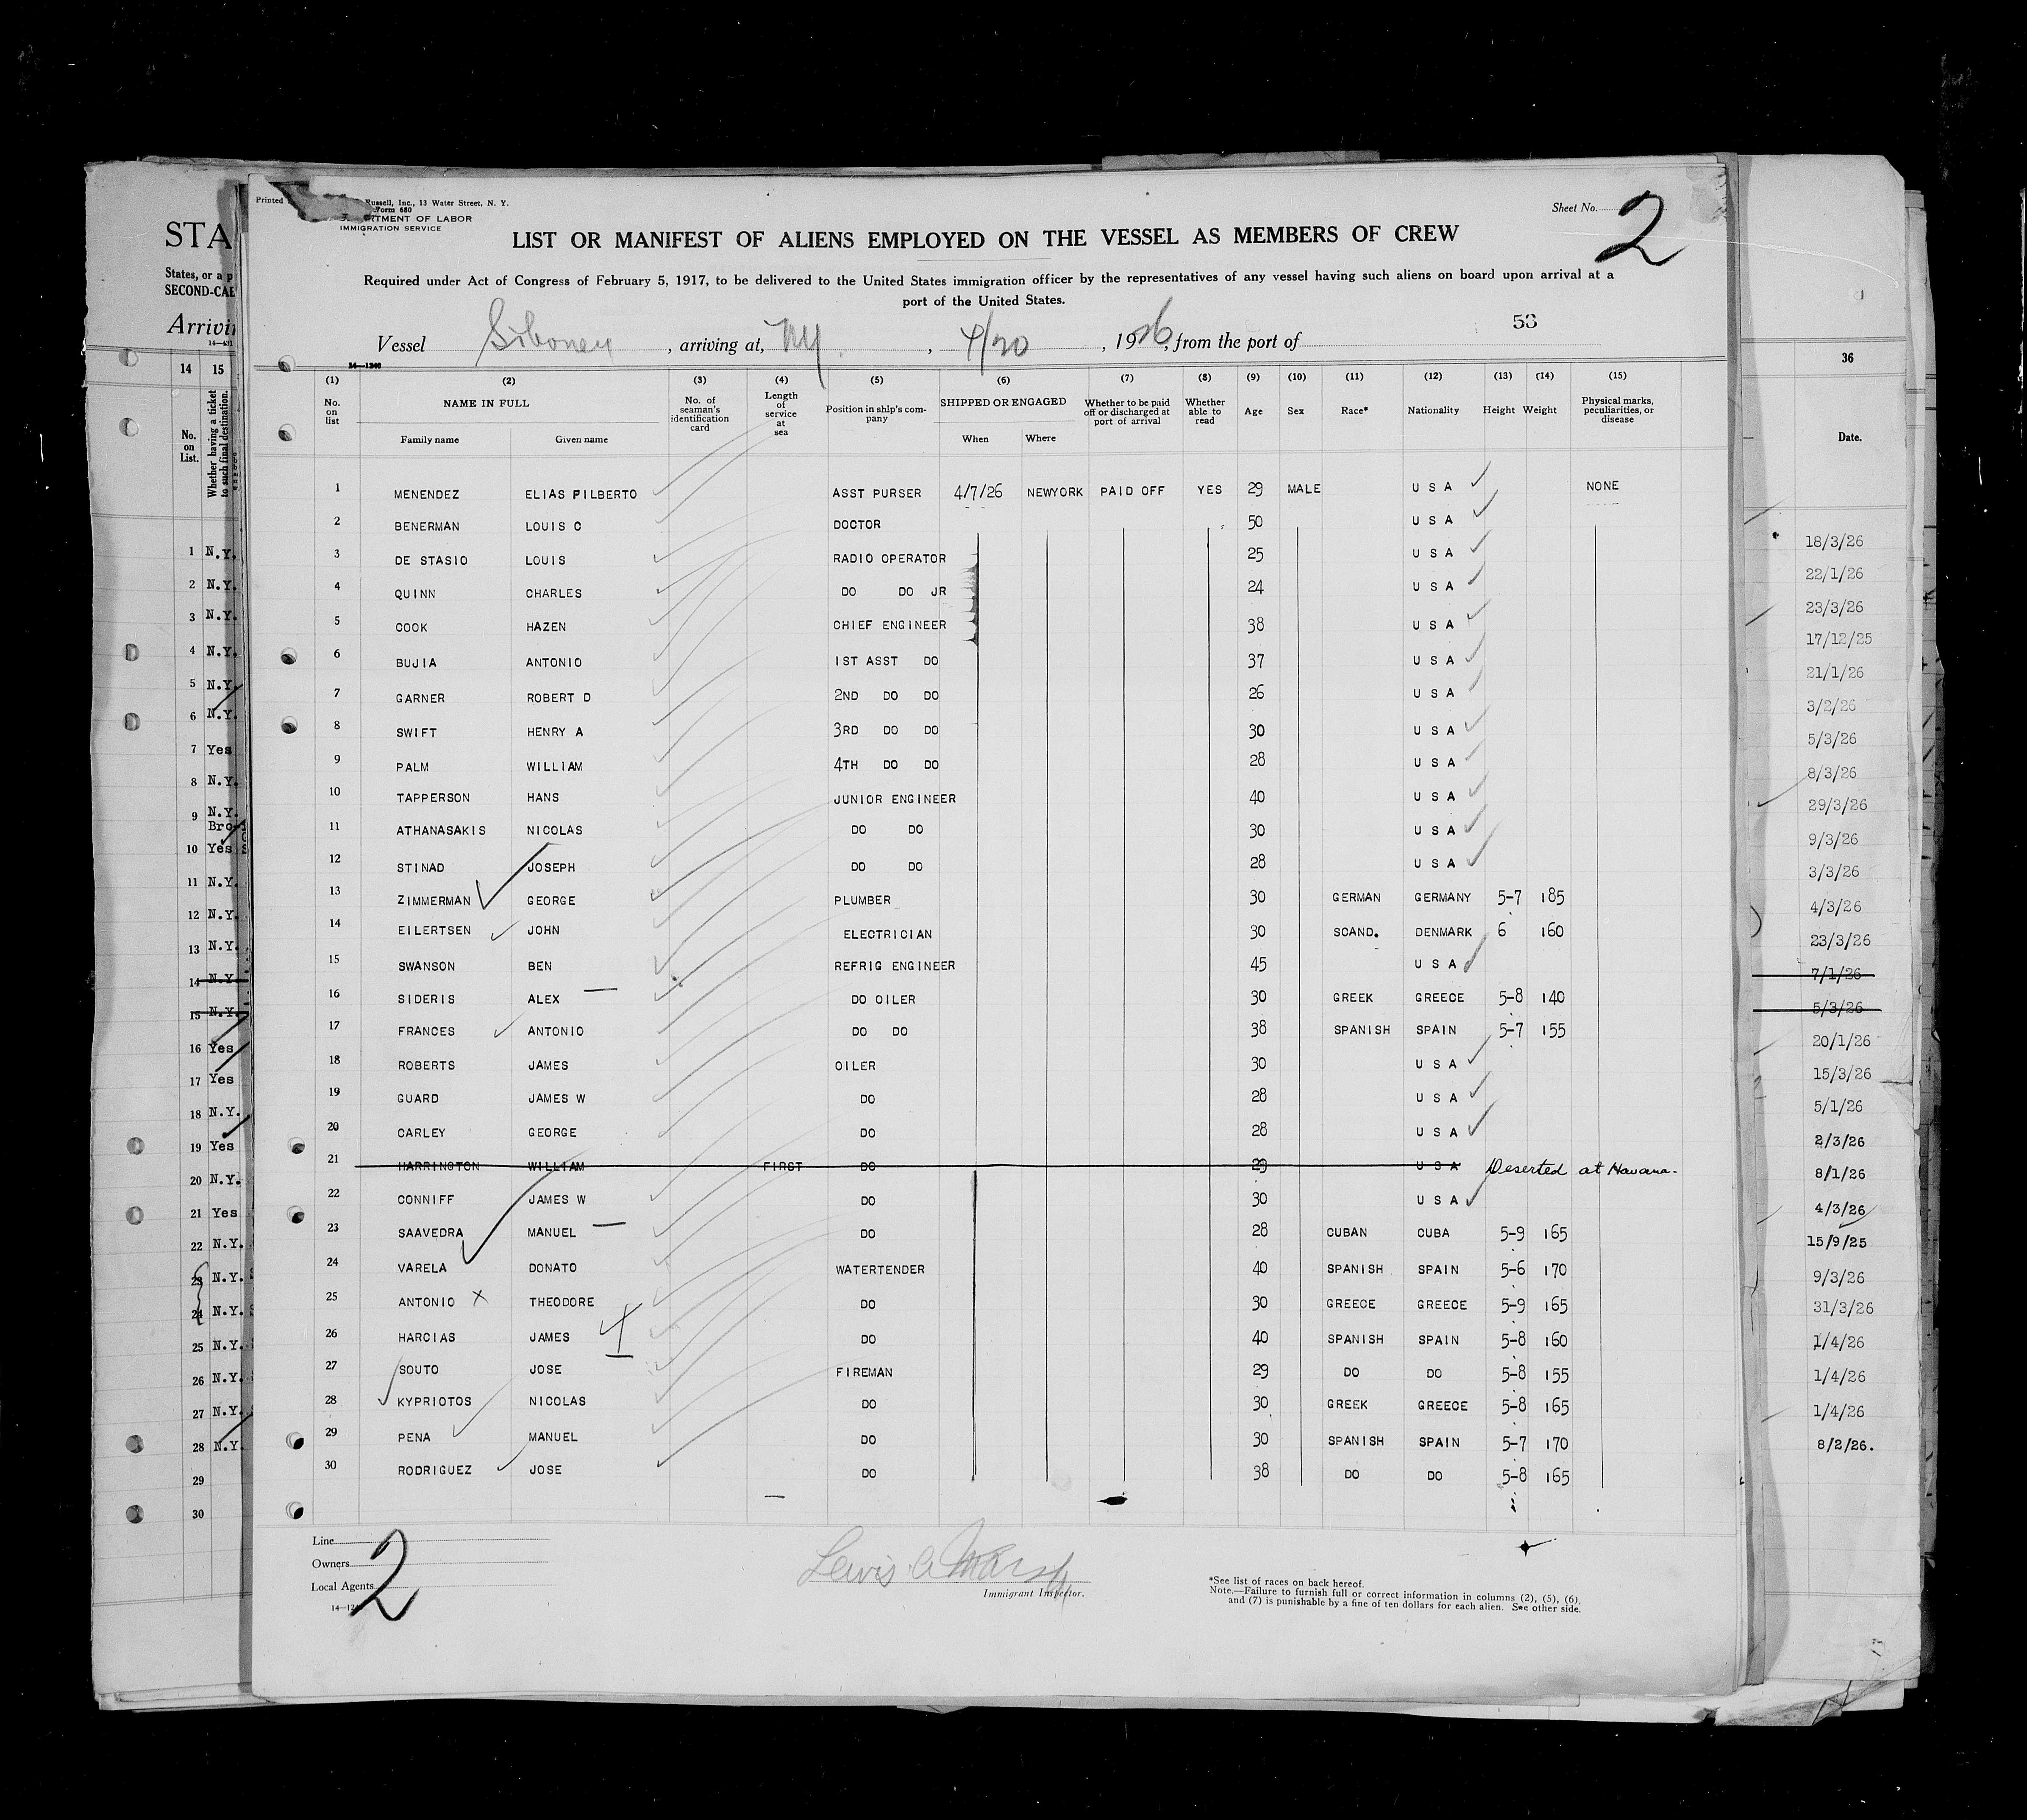 Printed Russell, Inc., 13 Water Street, N. Y.
Form 680
RTMENT OF LABOR
IMMIGRATION SERVICE
Sheet No. 2
LIST OR MANIFEST OF ALIENS EMPLOYED ON THE VESSEL AS MEMBERS OF CREW
Required under Act of Congress of February 5, 1917, to be delivered to the United States immigration officer by the representatives of any vessel having such aliens on board upon arrival at a
port of the United States.
53
Vessel Siboney, arriving at, NY, 4/20, 1926, from the port of
14—1240
(1) (2) (3) (4) (5) (6) (7) (8) (9) (10) (11) (12) (13) (14) (15)
No. on list NAME IN FULL No. of seaman's identification card Length of service at sea Position in ship's company SHIPPED OR ENGAGED Whether to be paid off or discharged at port of arrival Whether able to read Age Sex Race* Nationality Height Weight Physical marks, peculiarities, or disease
Family name Given name When Where
1 MENENDEZ ELIAS FILBERTO ASST PURSER 4/7/26 NEWYORK PAID OFF YES 29 MALE U S A NONE
2 BENERMAN LOUIS C DOCTOR 50 U S A
3 DE STASIO LOUIS RADIO OPERATOR 25 U S A
4 QUINN CHARLES DO DO JR 24 U S A
5 COOK HAZEN CHIEF ENGINEER 38 U S A
6 BUJIA ANTONIO 1ST ASST DO 37 U S A
7 GARNER ROBERT D 2ND DO DO 26 U S A
8 SWIFT HENRY A 3RD DO DO 30 U S A
9 PALM WILLIAM 4TH DO DO 28 U S A
10 TAPPERSON HANS JUNIOR ENGINEER 40 U S A
11 ATHANASAKIS NICOLAS DO DO 30 U S A
12 STINAD JOSEPH DO DO 28 U S A
13 ZIMMERMAN GEORGE PLUMBER 30 GERMAN GERMANY 5-7 185
14 EILERTSEN JOHN ELECTRICIAN 30 SCAND. DENMARK 6 160
15 SWANSON BEN REFRIG ENGINEER 45 U S A
16 SIDERIS ALEX DO OILER 30 GREEK GREECE 5-8 140
17 FRANCES ANTONIO DO DO 38 SPANISH SPAIN 5-7 155
18 ROBERTS JAMES OILER 30 U S A
19 GUARD JAMES W DO 28 U S A
20 CARLEY GEORGE DO 28 U S A
21 HARRINGTON WILLIAM FIRST DO 29 U S A Deserted at Havana.
22 CONNIFF JAMES W DO 30 U S A
23 SAAVEDRA MANUEL DO 28 CUBAN CUBA 5-9 165
24 VARELA DONATO WATERTENDER 40 SPANISH SPAIN 5-6 170
25 ANTONIO X THEODORE DO 30 GREECE GREECE 5-9 165
26 HARCIAS JAMES DO 40 SPANISH SPAIN 5-8 160
27 SOUTO JOSE FIREMAN 29 DO DO 5-8 155
28 KYPRIOTOS NICOLAS DO 30 GREEK GREECE 5-8 165
29 PENA MANUEL DO 30 SPANISH SPAIN 5-7 170
30 RODRIGUEZ JOSE DO 38 DO DO 5-8 165
Line
Owners
Local Agents
2
Lewis A Marsh
Immigrant Inspector.
*See list of races on back hereof.
Note.—Failure to furnish full or correct information in columns (2), (5), (6),
and (7) is punishable by a fine of ten dollars for each alien. See other side.
STA
States, or a p
SECOND-CAB
Arrivin
14 15
No. on List. Whether having a ticket to such final destination.
1 N.Y.
2 N.Y.
3 N.Y.
4 N.Y.
5 N.Y.
6 N.Y.
7 Yes
8 N.Y.
9 N.Y.
Bro
10 Yes
11 N.Y.
12 N.Y.
13 N.Y.
14 N.Y.
15 N.Y.
16 Yes
17 Yes
18 N.Y.
19 Yes
20 N.Y.
21 Yes
22 N.Y.
23 N.Y.
24 N.Y.
25 N.Y.
26 N.Y.
27 N.Y.
28 N.Y.
29
30
36
Date.
18/3/26
22/1/26
23/3/26
17/12/25
21/1/26
3/2/26
5/3/26
8/3/26
29/3/26
9/3/26
3/3/26
4/3/26
23/3/26
7/1/26
5/3/26
20/1/26
15/3/26
5/1/26
2/3/26
8/1/26
4/3/26
15/9/25
9/3/26
31/3/26
1/4/26
1/4/26
1/4/26
8/2/26.
13